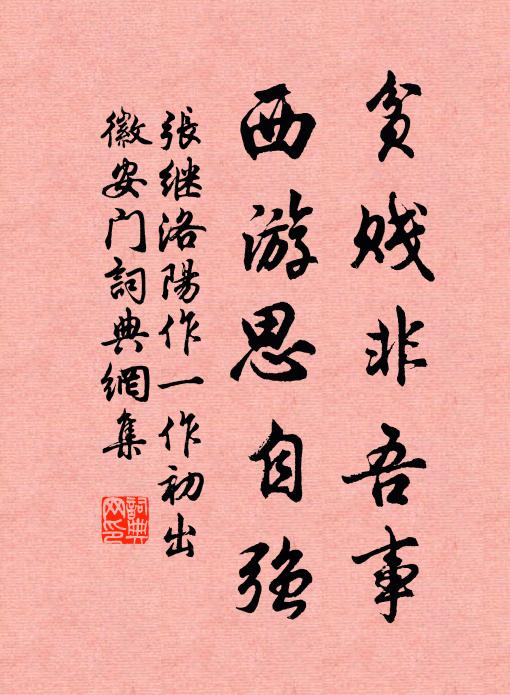 貧賤非吾事
西游思自強
張継洛陽作一作初出
徽安门詞典網集
詞典
网印